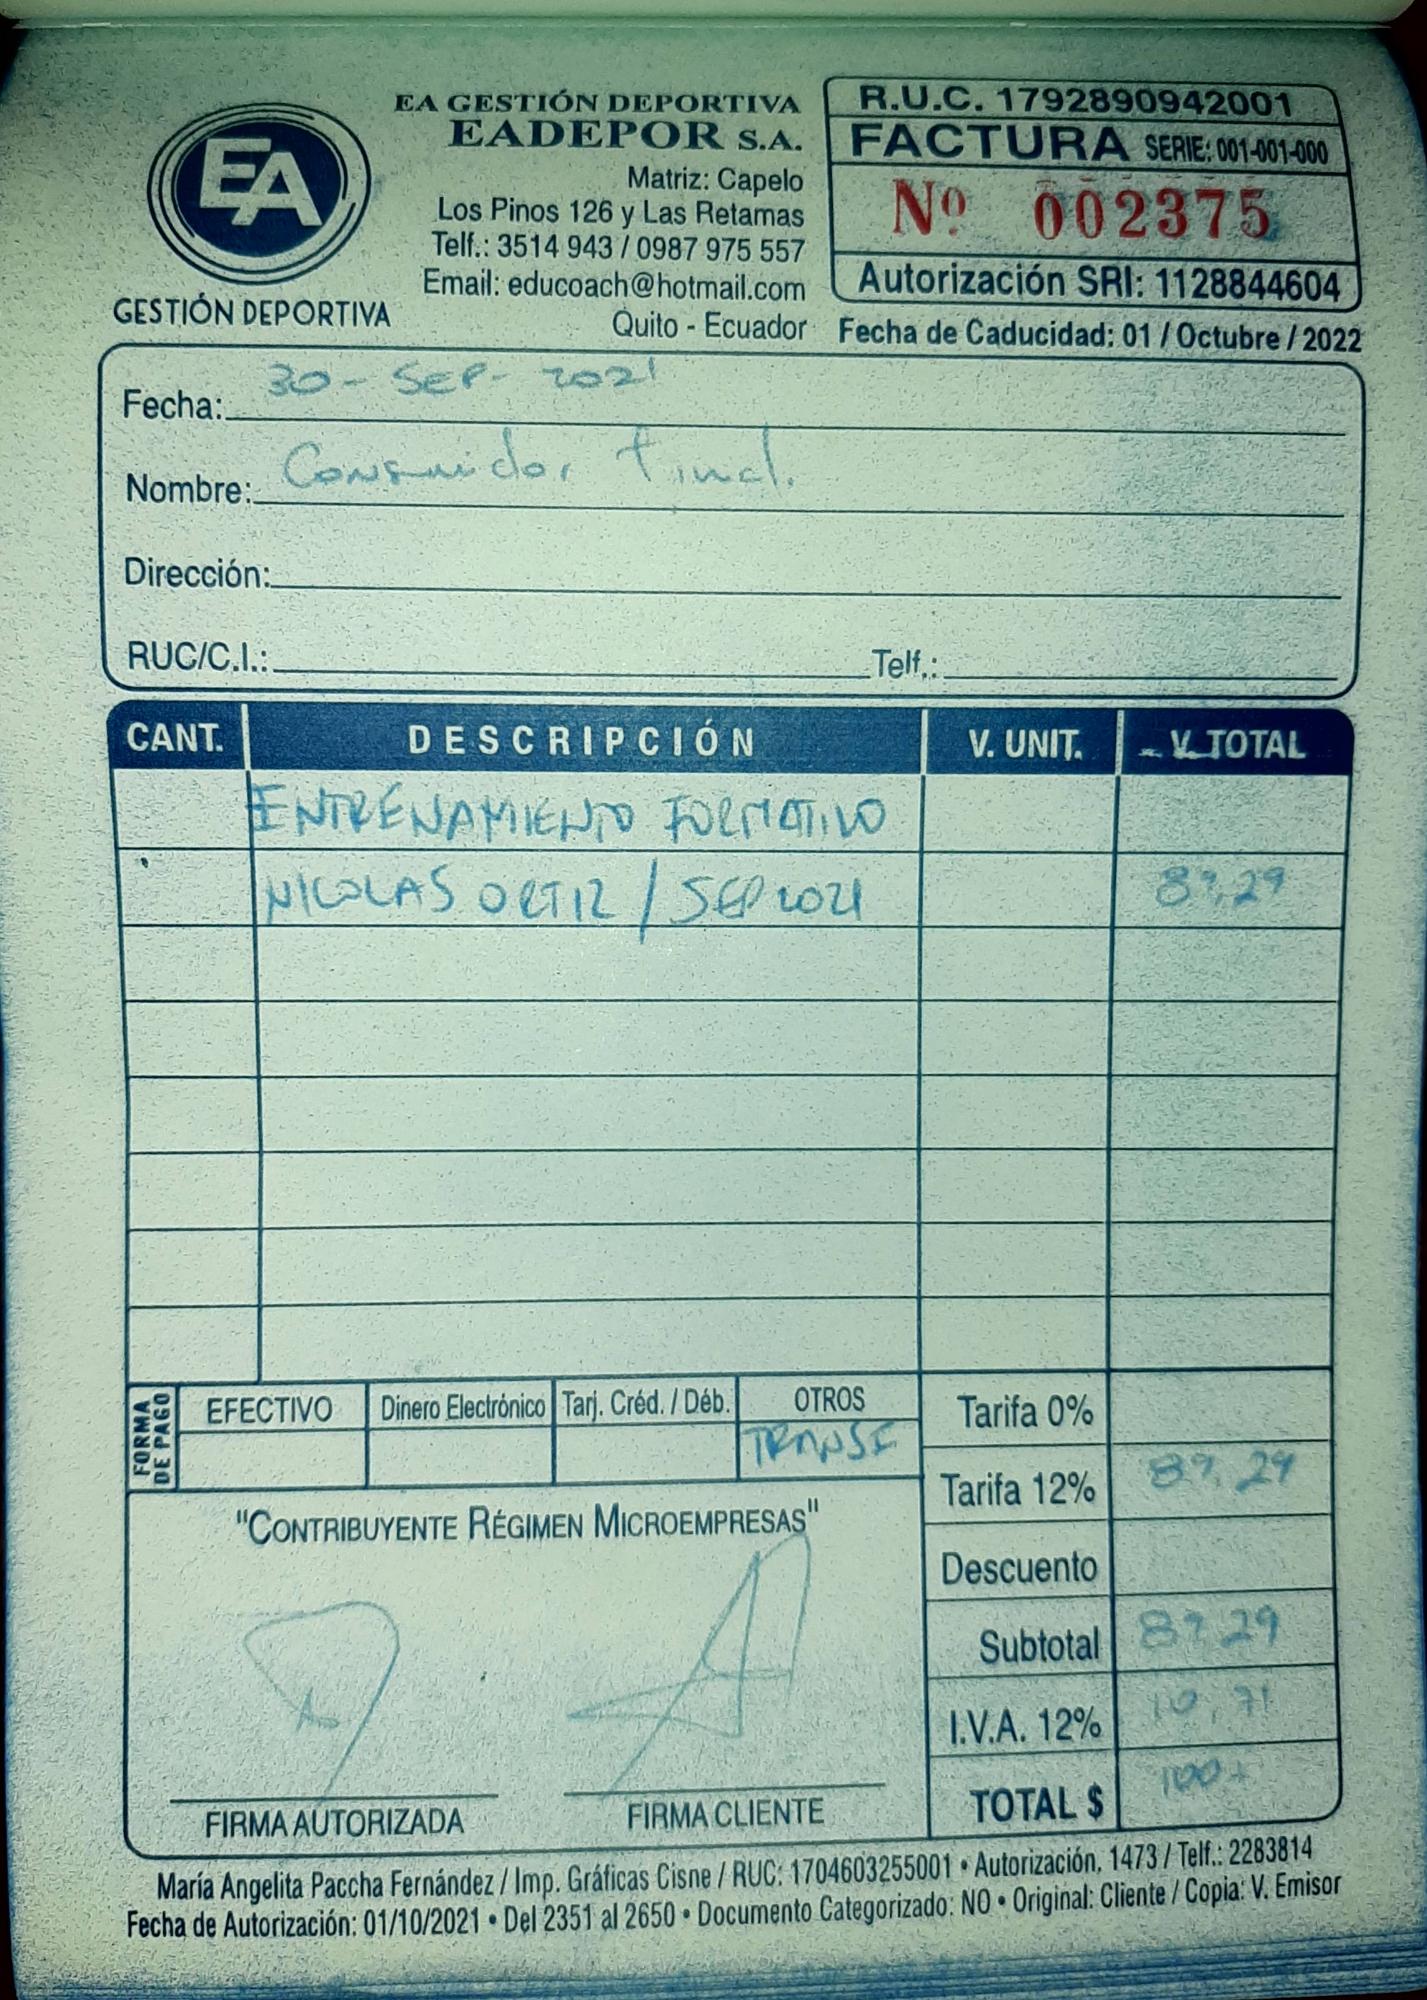 EA
GESTIÓN DEPORTIVA
EA GESTIÓN DEPORTIVA
EADEPOR S.A.
Matriz: Capelo
Los Pinos 126 y Las Retamas
Telf.: 3514 943 / 0987 975 557
Email: educoach@hotmail.com
Quito - Ecuador
R.U.C. 1792890942001
FACTURA SERIE: 001-001-000
Nº 002375
Autorización SRI: 1128844604
Fecha de Caducidad: 01 / Octubre / 2022
Fecha: 30 - SEP - 2021
Nombre: Consumidor Final.
Dirección:
RUC/C.I.: Telf.:
CANT. DESCRIPCIÓN V. UNIT. V. TOTAL
ENTRENAMIENTO FORMATIVO
NICOLAS ORTIZ / SEP 2021 89,29
FORMA DE PAGO
EFECTIVO Dinero Electrónico Tarj. Créd. / Déb. OTROS
TRANSF
Tarifa 0%
Tarifa 12% 89,29
Descuento
Subtotal 89,29
I.V.A. 12% 10,71
TOTAL $ 100
"CONTRIBUYENTE RÉGIMEN MICROEMPRESAS"
FIRMA AUTORIZADA FIRMA CLIENTE
María Angelita Paccha Fernández / Imp. Gráficas Cisne / RUC: 1704603255001 • Autorización, 1473 / Telf.: 2283814
Fecha de Autorización: 01/10/2021 • Del 2351 al 2650 • Documento Categorizado: NO • Original: Cliente / Copia: V. Emisor